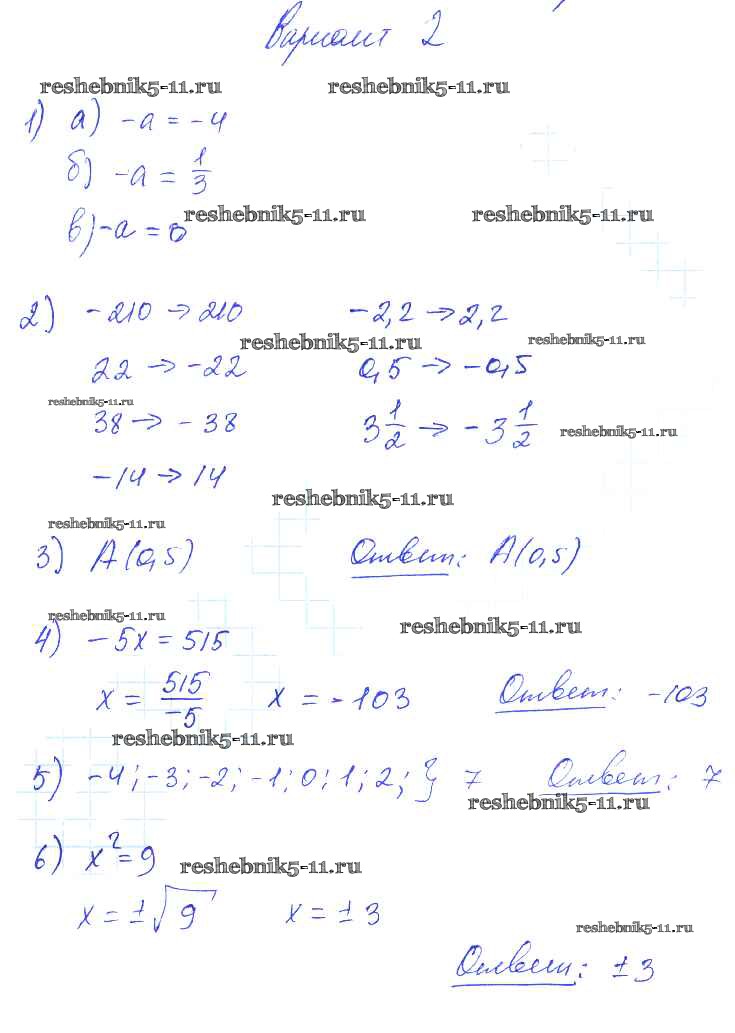 Вариант 2
reshebnik5-11.ru reshebnik5-11.ru
1) а) -а = -4
б) -а = 1/3
reshebnik5-11.ru reshebnik5-11.ru
в) -а = 0
2) -210 → 210 -2,2 → 2,2
reshebnik5-11.ru reshebnik5-11.ru
22 → -22 0,5 → -0,5
reshebnik5-11.ru
38 → -38 3 1/2 → -3 1/2
reshebnik5-11.ru
-14 → 14
reshebnik5-11.ru
reshebnik5-11.ru
3) А(0,5) Ответ: А(0,5)
reshebnik5-11.ru
reshebnik5-11.ru
4) -5х = 515
х = 515/-5 х = -103 Ответ: -103
reshebnik5-11.ru
5) -4; -3; -2; -1; 0; 1; 2; } 7 Ответ: 7
reshebnik5-11.ru
6) х² = 9
reshebnik5-11.ru
х = ±√9 х = ±3
reshebnik5-11.ru
Ответ: ±3